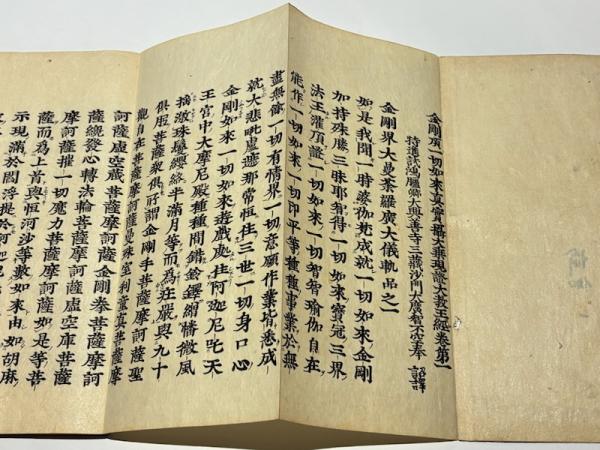 金剛頂一切如來真實攝大乘現證大教王經卷第一
特進試鴻臚卿大興善寺三藏沙門大廣智不空奉 詔譯
金剛界大曼荼羅廣大儀軌品之一
如是我聞一時婆伽梵成就一切如來金剛
加持殊勝三昧耶智得一切如來寶冠三界
法王灌頂證一切如來一切智智瑜伽自在
能作一切如來一切印平等種種事業於無
盡無餘一切有情界一切意願作業皆悉成
就大悲毗盧遮那常恒住三世一切身口心
金剛如來一切如來遊戲處住阿迦尼吒天
王宮中大摩尼殿種種間錯鈴鐸繒幡微風
搖激珠鬘瓔珞半滿月等而為莊嚴與九十
俱胝菩薩衆俱所謂金剛手菩薩摩訶薩聖
觀自在菩薩摩訶薩曼殊室利童真菩薩摩
訶薩虛空藏菩薩摩訶薩金剛拳菩薩摩訶
薩纔發心轉法輪菩薩摩訶薩虛空庫菩薩
摩訶薩摧一切魔力菩薩摩訶薩如是等菩
薩而為上首與恒河沙等數如來由如胡麻
示現滿於閻浮提於阿迦尼